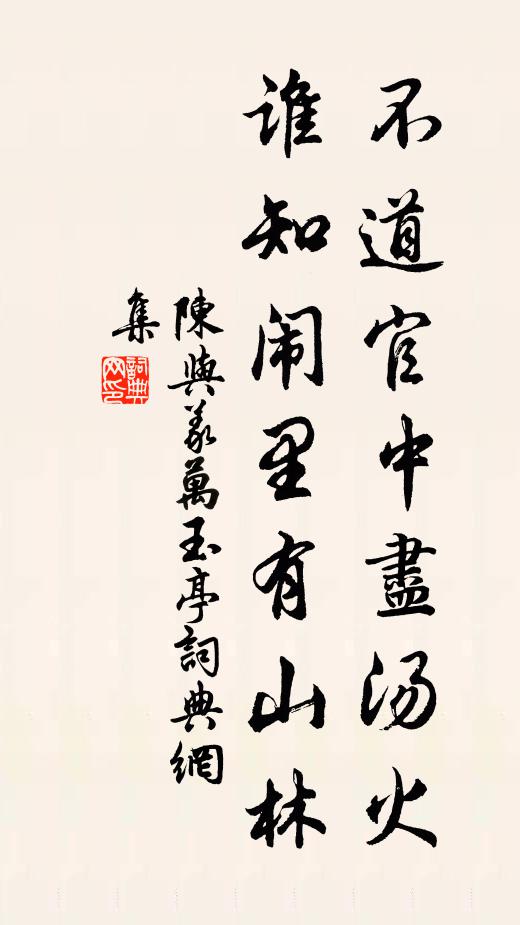 不道官中盡汤火
谁知闹里有山林
陳與義萬玉亭詞典網
集
詞典网印